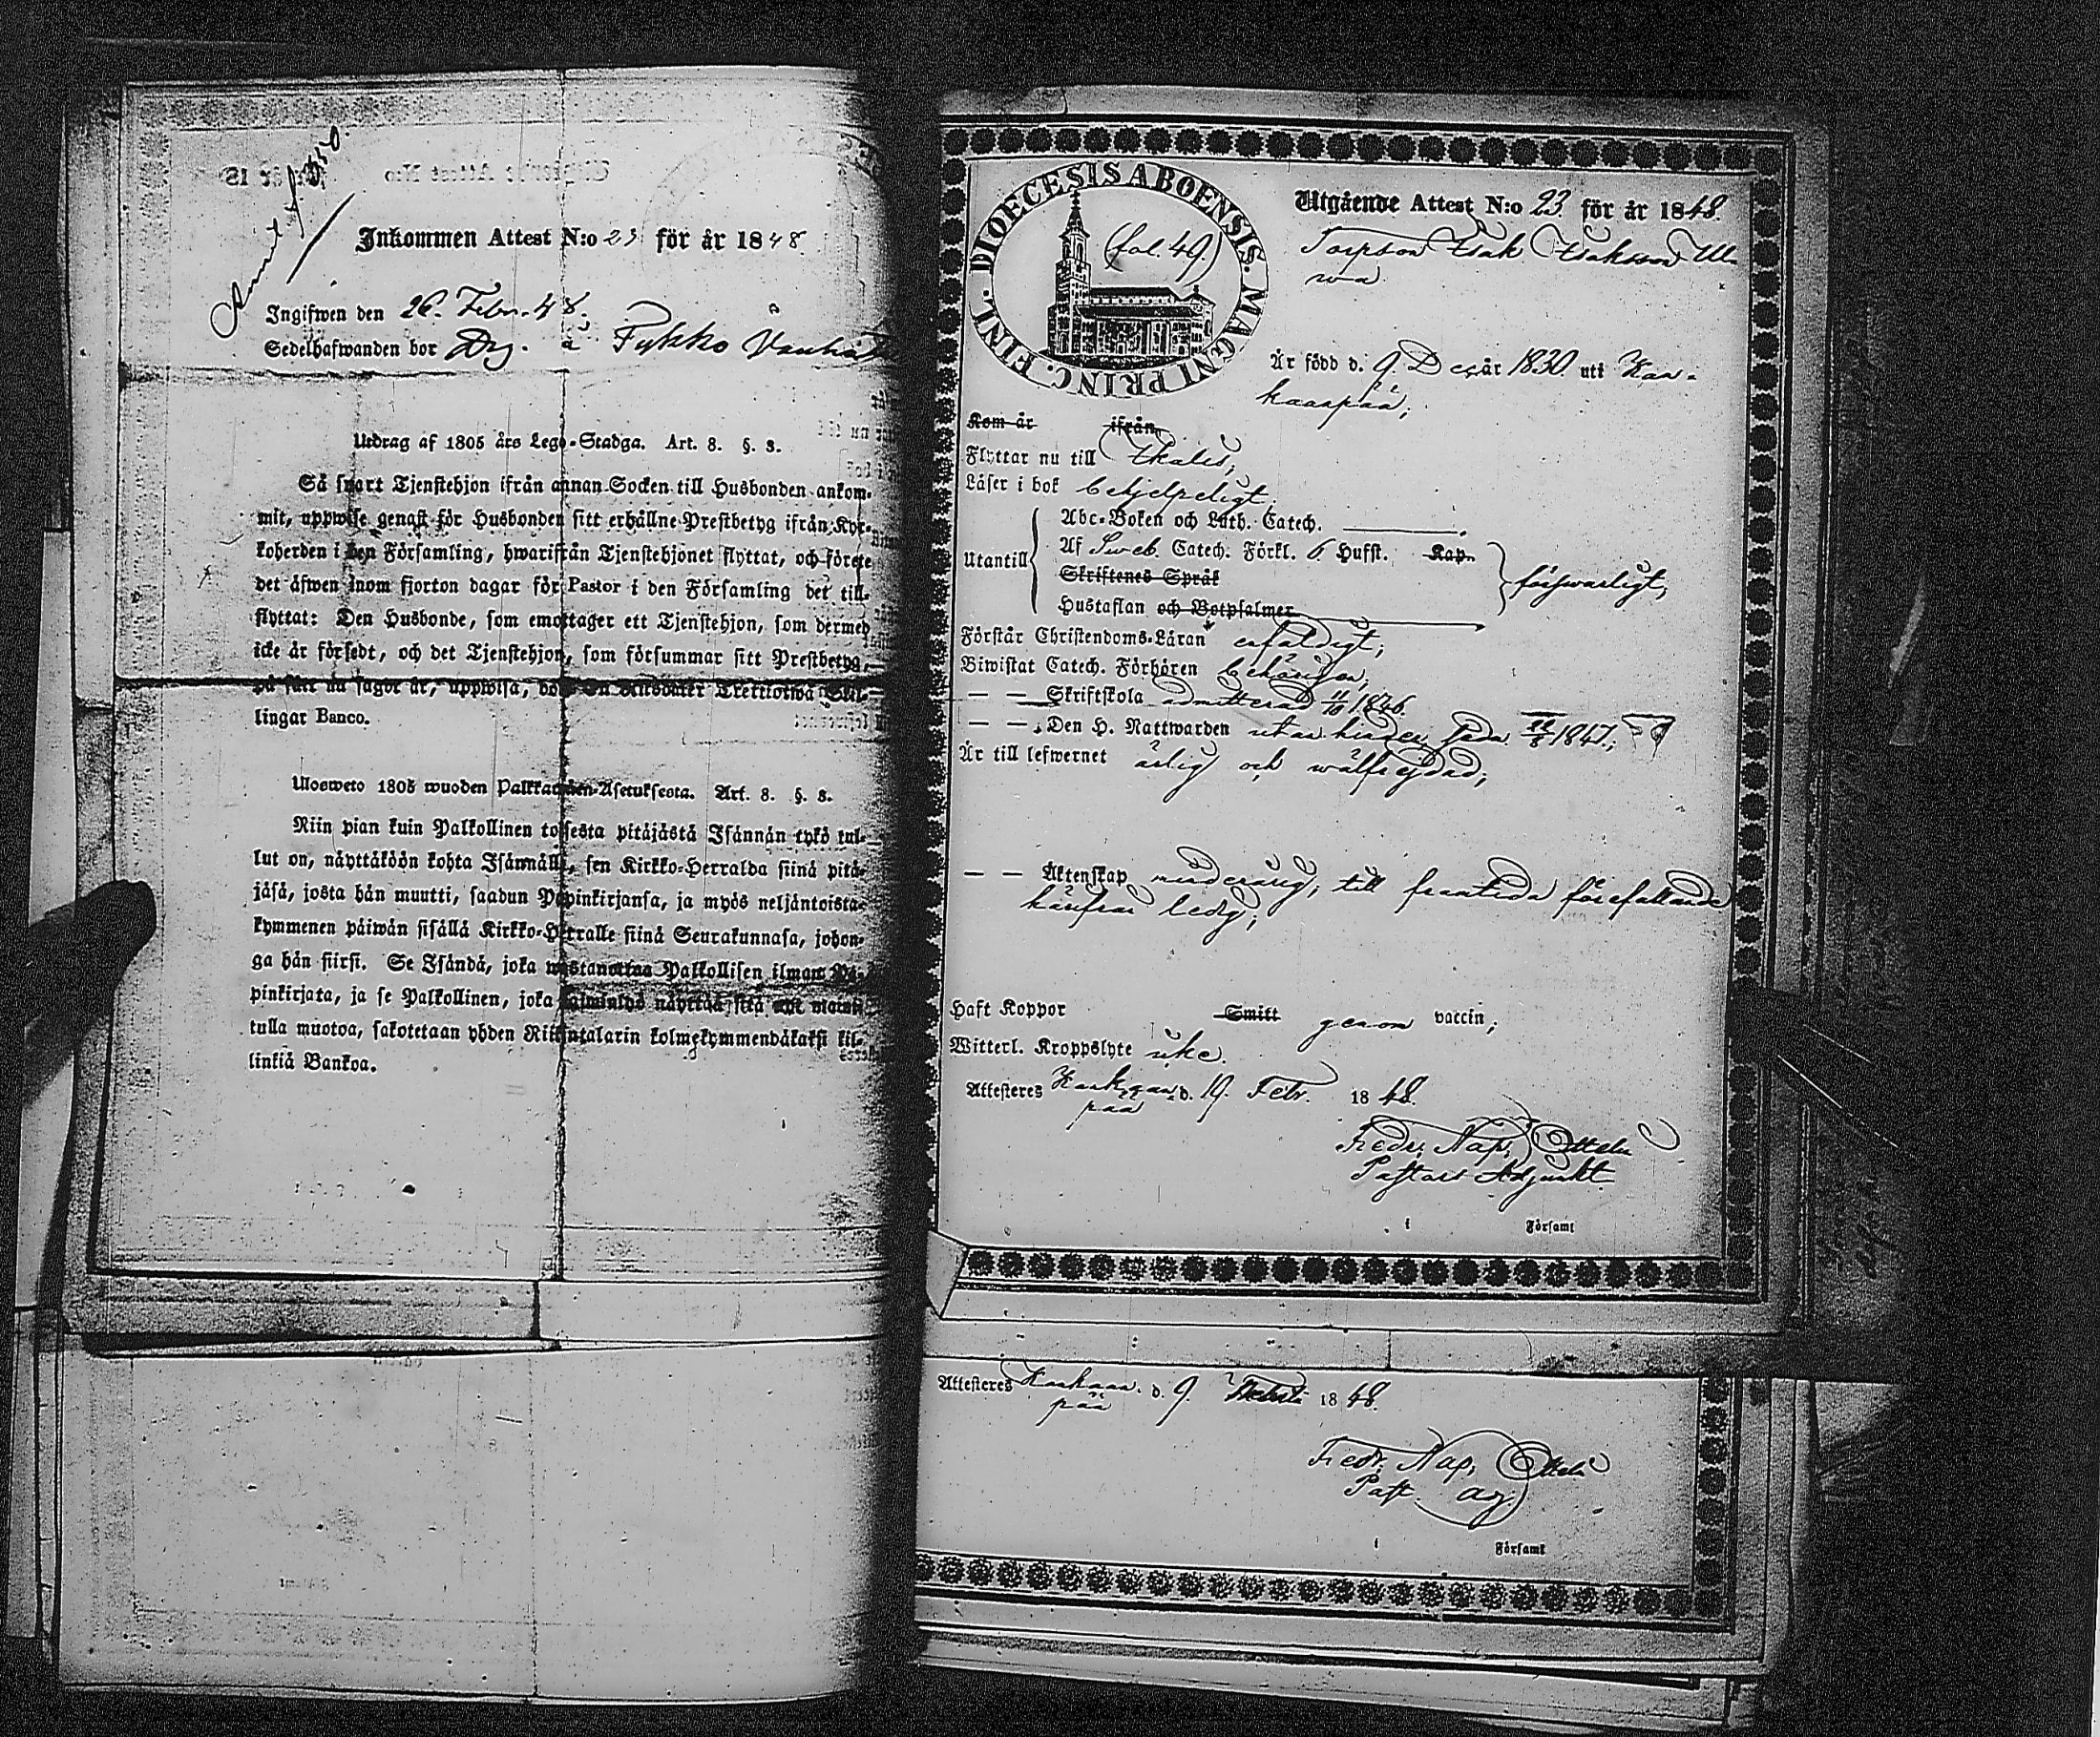 Inkommen Attest N:o 23 för år 1848
Ingifwen den 26. Febr. 48.
Sedelhafwanden bor Drg. å Pykko
Utdrag af 1805 års Lego-Stadga. Art. 8. §. 3.
Så snart Tjenstehjon ifrån annan Socken till Husbonden ankom-
mit, uppwise genast för Husbonden sitt erhållne Prestbetyg ifrån Kyr-
koherden i den Församling, hwarifrån Tjenstehjonet flyttat, och förete
det äfwen inom fjorton dagar för Pastor i den Församling det till-
flyttat: Den Husbonde, som emottager ett Tjenstehjon, som dermed
icke är försedt, och det Tjenstehjon, som försummar sitt Prestbetyg,
på sätt nu sagdt är, uppwisa, böte en Riksdaler Trettiotwå Skil-
lingar Banco.
Ulosweto 1805 wuoden Palkkawäen-Asetuksesta. Art. 8. §. 3.
Niin pian kuin Palkollinen toisesta pitäjästä Isännän tykö tul-
lut on, näyttäköön kohta Isännälle, sen Kirkko-Herralda siinä pitä-
jäsä, josta hän muutti, saadun Papinkirjansa, ja myös neljäntoista-
kymmenen päiwän sisällä Kirkko-Herralle siinä Seurakunnasa, johon-
ga hän siirsi. Se Isändä, joka wastanottaa Palkollisen ilman Pa-
pinkirjata, ja se Palkollinen, joka laiminlyö näyttää sitä nyt mainit-
tulla muotoa, sakotetaan yhden Riksintalarin kolmekymmendäkaksi kil-
linkiä Bankoa.
DIOECESIS ABOENSIS. MAGNI PRINC. FINL.
(fol. 49.)
Utgående Attest N:o 23. för år 1848.
Torpson Isak Isaksson Ul-
wa
Är född d. 9. Dec. år 1830. uti Kan-
kaanpää;
Kom år ifrån
Flyttar nu till Ikalis;
Läser i bok behjelpeligt;
Utantill
Abc-Boken och Luth. Catech.
Af Sweb. Catech. Förkl. 6 Hufst. Kap.
Skriftenes Språk
Hustaflan och Botpsalmer
försvarligt;
Förstår Christendoms-Läran enfaldigt;
Biwistat Catech. Förhören behörigen;
— — Skriftskola admitterad 11/10 1846.
— — Den H. Nattwarden utan hinder, 1847;
Är till lefwernet ärlig och wälfrejdad;
— — Äktenskap minderårig, till framtida förefallande
hänfrar ledig;
Haft Koppor Smitt genom vaccin;
Witterl. Kroppslyte icke.
Attesteres Kankaan- d. 19. Febr. 1848.
pää
Fredr. Nap.
Pastors Adjunkt.
i Församl
Attesteres Kankaan- d. 9. 1848.
pää
Fredr. Nap.
Past. adj.
i Församl